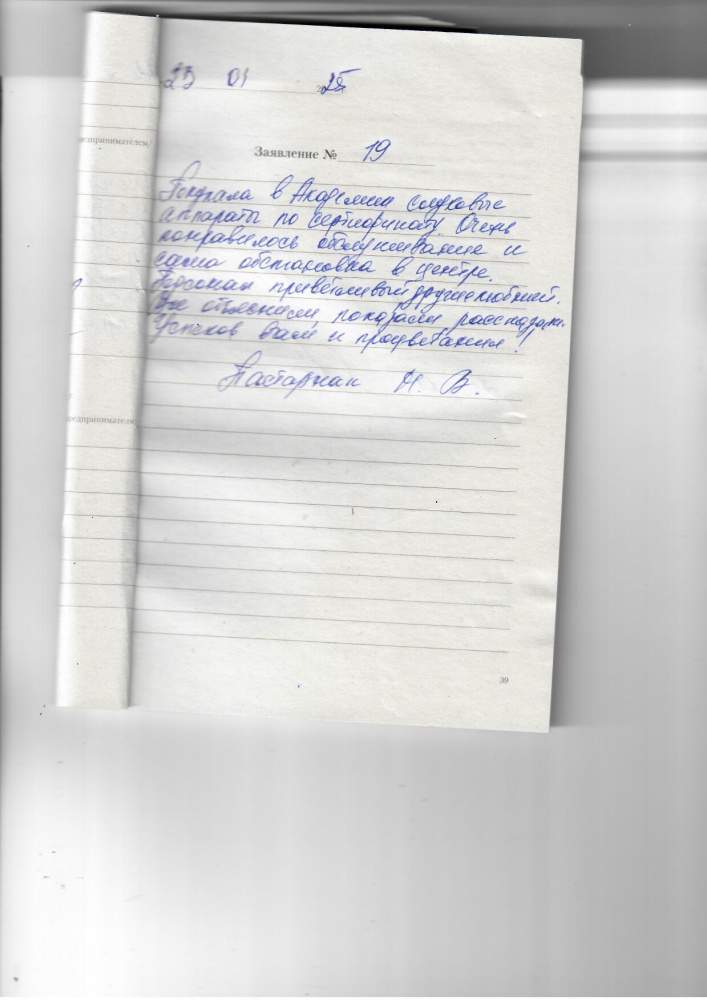 23 01 25
едпринимателем
Заявление № 19
Покупала в Академии слуховые
аппараты по сертификату. Очень
понравилось обслуживание и
сама обстановка в центре.
Персонал приветливый, дружелюбный.
Все объяснили, показали, рассказали.
Успехов вам и процветания!
Н. В.
едпринимателем
39